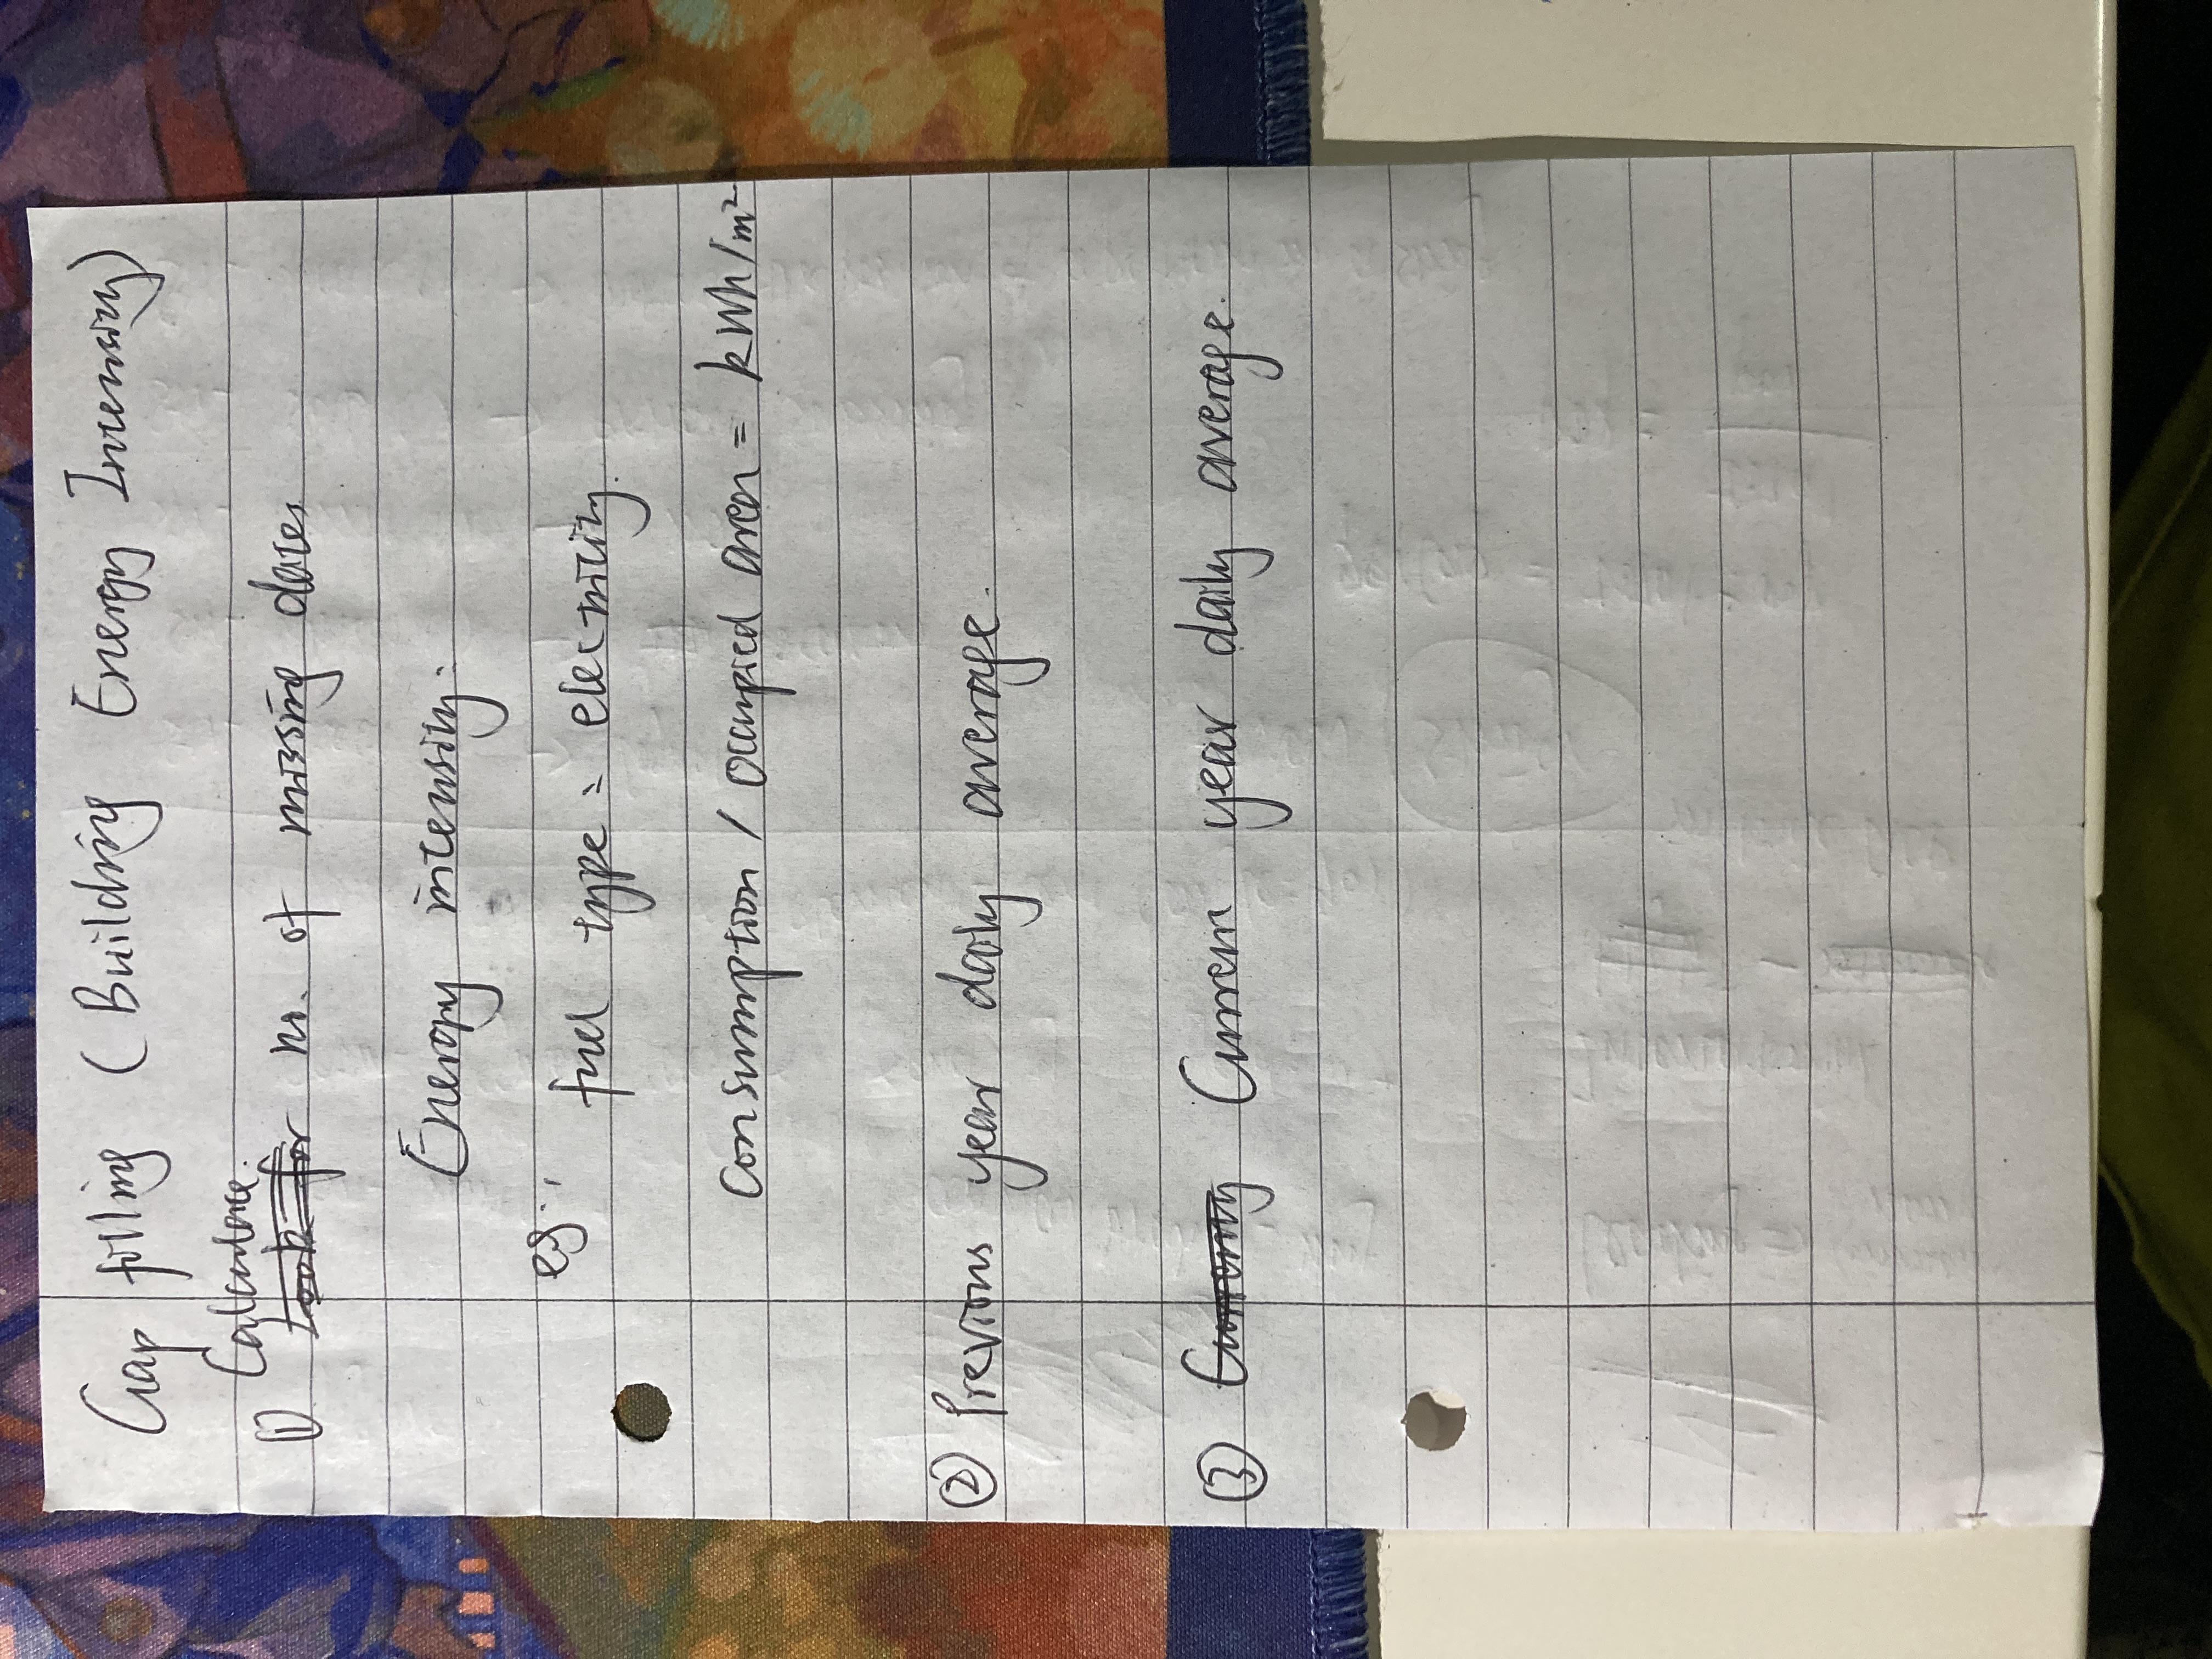 Gap filling (Building Energy Intensity)
Calculate.
① Look for no. of missing dates
Energy intensity:
eg.,
fuel type = electricity.
Consumption / occupied area = kWh/m²
② Previous year daily average.
③ Currenty Current year daily average.